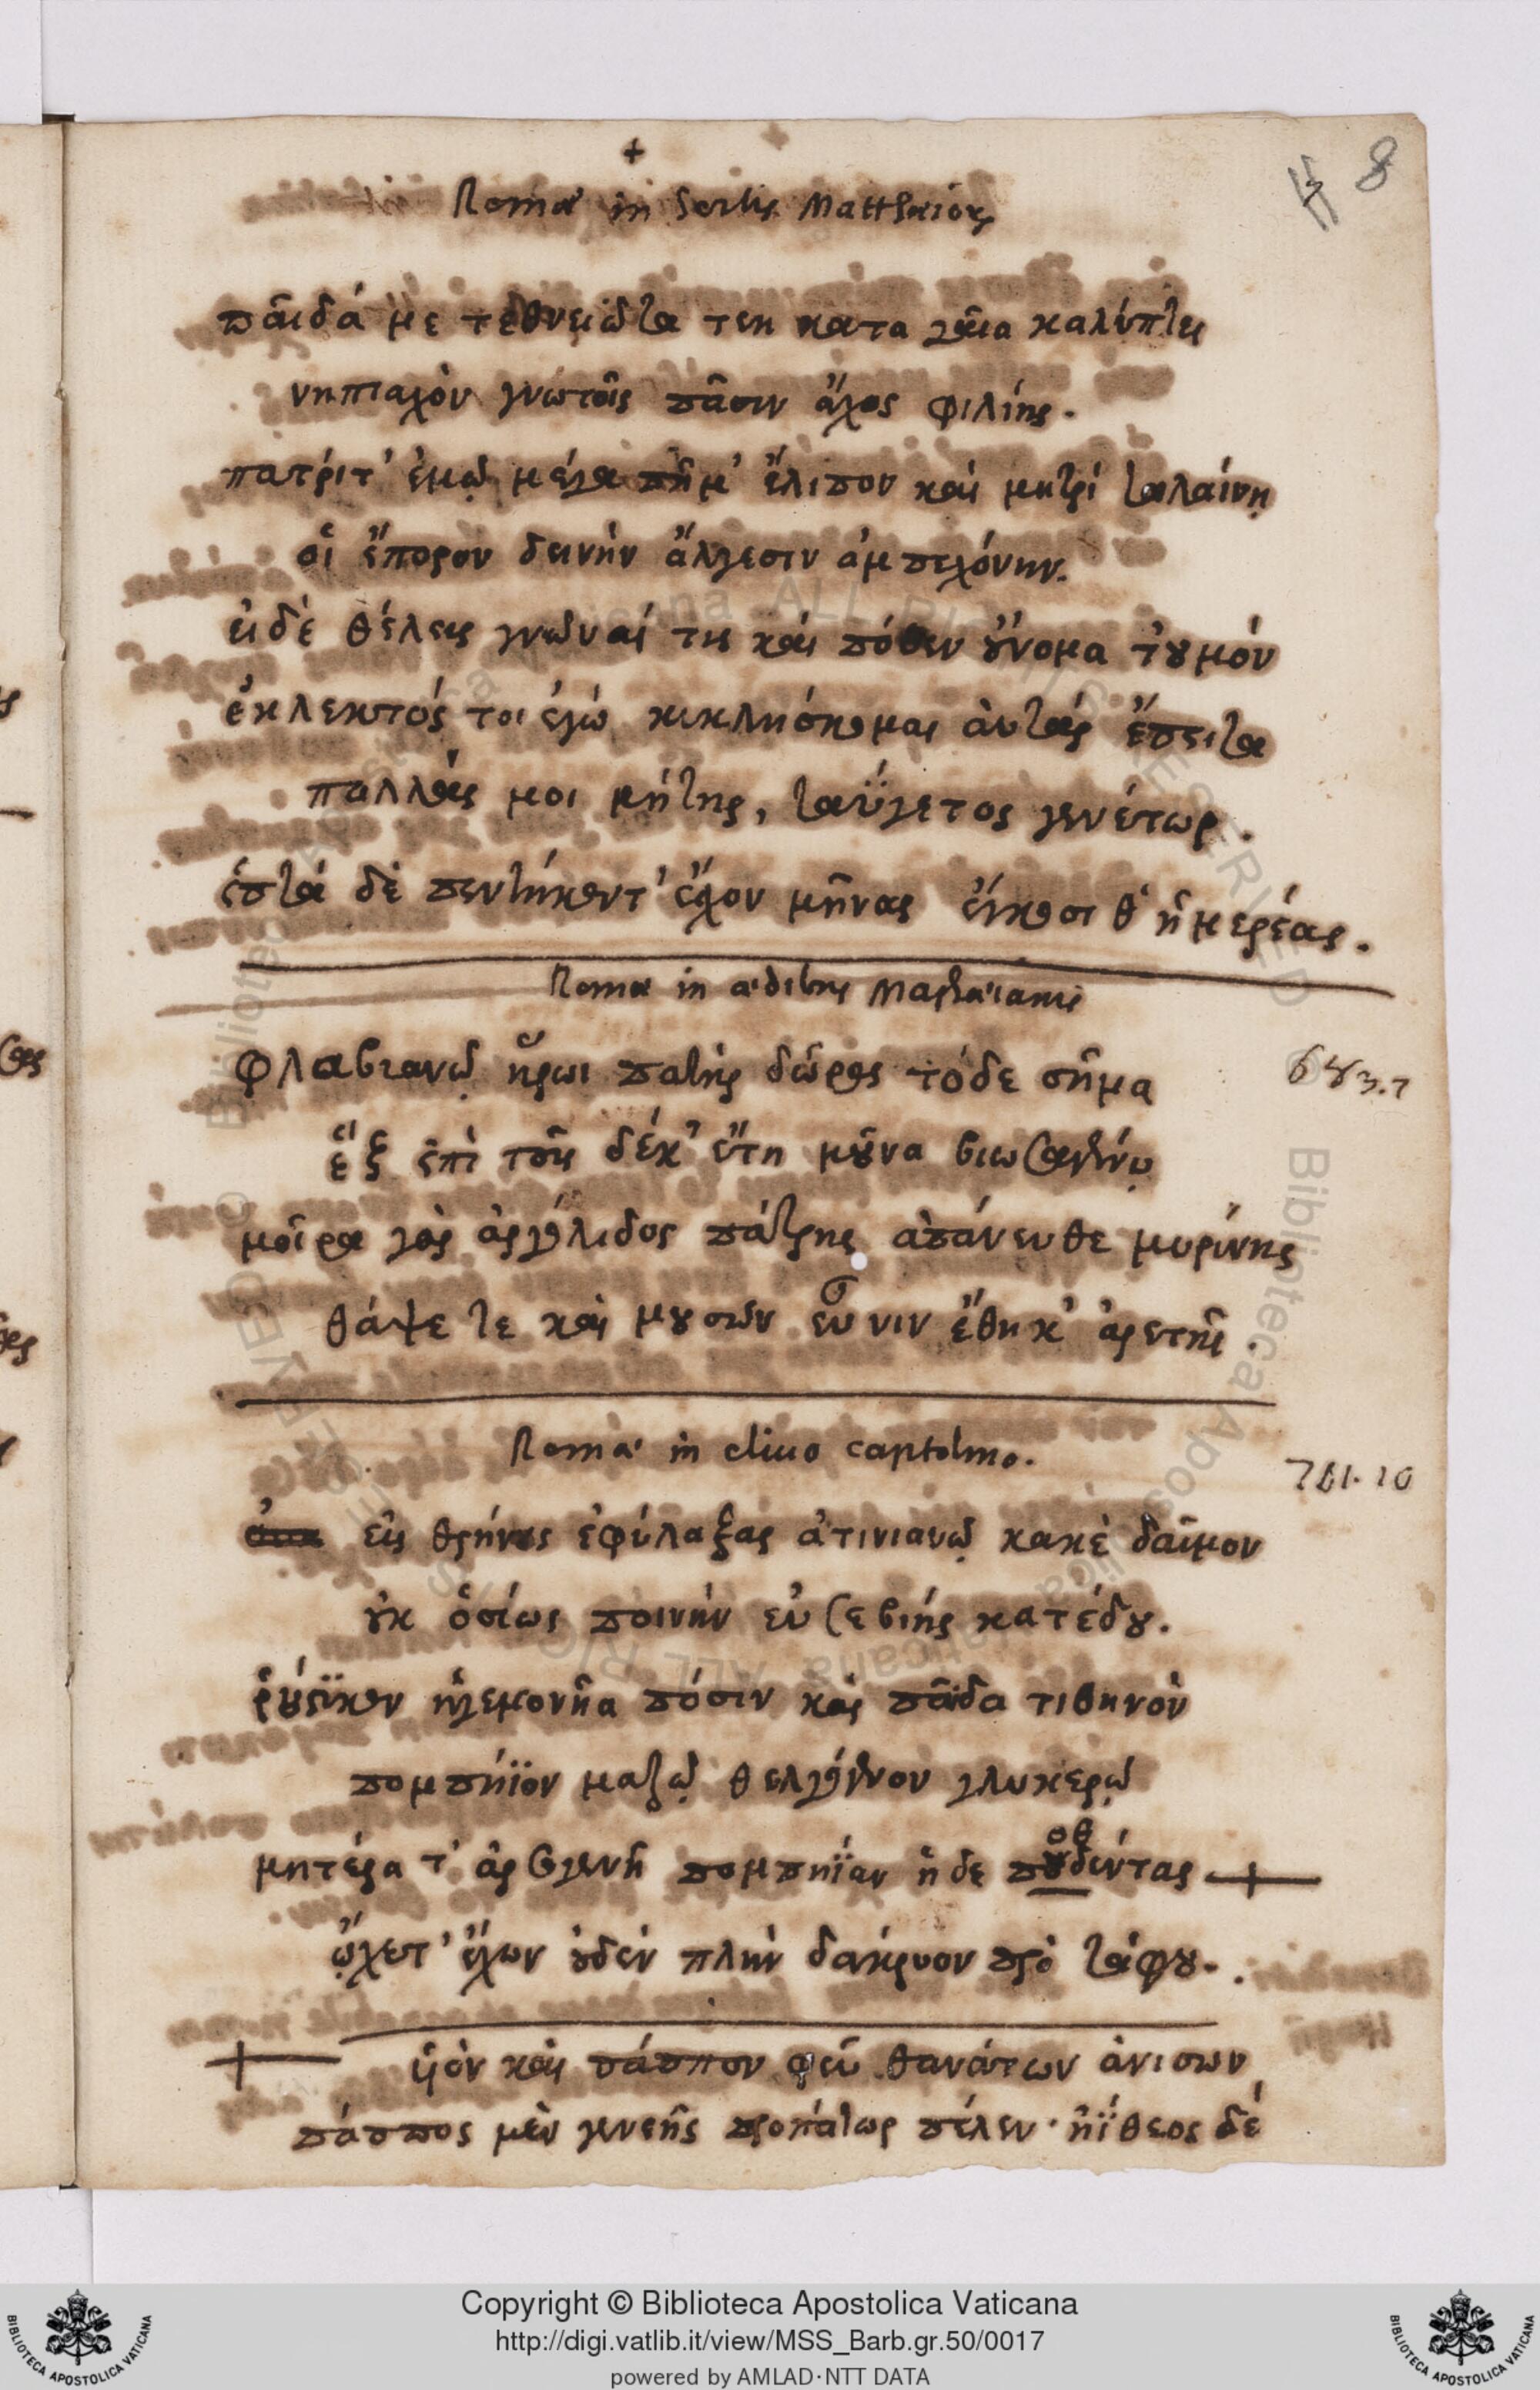 8
Romae in hortis Matthaiors
παῖδά με τεθνειῶτα τεη κατα γαῖα καλύπτει
νηπιαχὸν γνωτοῖς πᾶσιν ἄχος φιλίης.
πατρίτ' ἐμῷ μέγα πῆμ' ἔλιπον καὶ μητρί ταλαίνῃ
οἳ ἔπορον δεινὴν ἄλγεσιν ἀμπεχόνην.
εἰδὲ θέλεις γνῶναί τις καὶ πόθεν οὔνομα τοὐμόν
ἐκλεκτός τοι ἐγώ κικλήσκομαι ἀυτάρ ἔπειτα
παλλάς μοι μήτηρ, ταΰγετος γενέτωρ.
ἑπτά δὲ πεντήκοντ' ἔσχον μῆνας εἴκοσι θ' ἡμερέας.
Romae in aedibus Maphaeianis
Φλαβιανῷ ἥρωι πατὴρ δῶρος τόδε σῆμα
643.7
ἓξ ἐπὶ τοῖς δέκ' ἔτη μοῦνα βιωσαμένῳ
μοῖρα γὰρ ἀργαλιδος πάτρης ἀπάνευθε μυρίνης
θάψε τε καὶ μουσῶν εὖνιν ἔθηκ' ἀρετῆς.
Romae in cliuo capitolino.
701.10
εἰς θρήνους ἐφύλαξας ἀτινιανῷ κακὲ δαῖμον
οὐκ ὁσίως ποινὴν εὐσεβιής κατέδου.
ῥούφϊκον ἡγεμονῆα πόσιν καὶ παῖδα τιθηνὸν
πομπήϊον μαζῷ θελγόμενον γλυκερῷ
μητέρα τ' ἀρσιγενῆ πομπηΐαν ἠδε πουδέντας
οθ
ᾤχετ' ἔχων οὐδέν πλὴν δακρυον πρὸ τάφου.
ὑϊὸν καὶ πάππον φεῦ θανάτων ἀνισων
πάππος μὲν γενεῆς προπάτωρ πέλεν· ἠΐθεος δέ
Copyright © Biblioteca Apostolica Vaticana
http://digi.vatlib.it/view/MSS_Barb.gr.50/0017
powered by AMLAD·NTT DATA